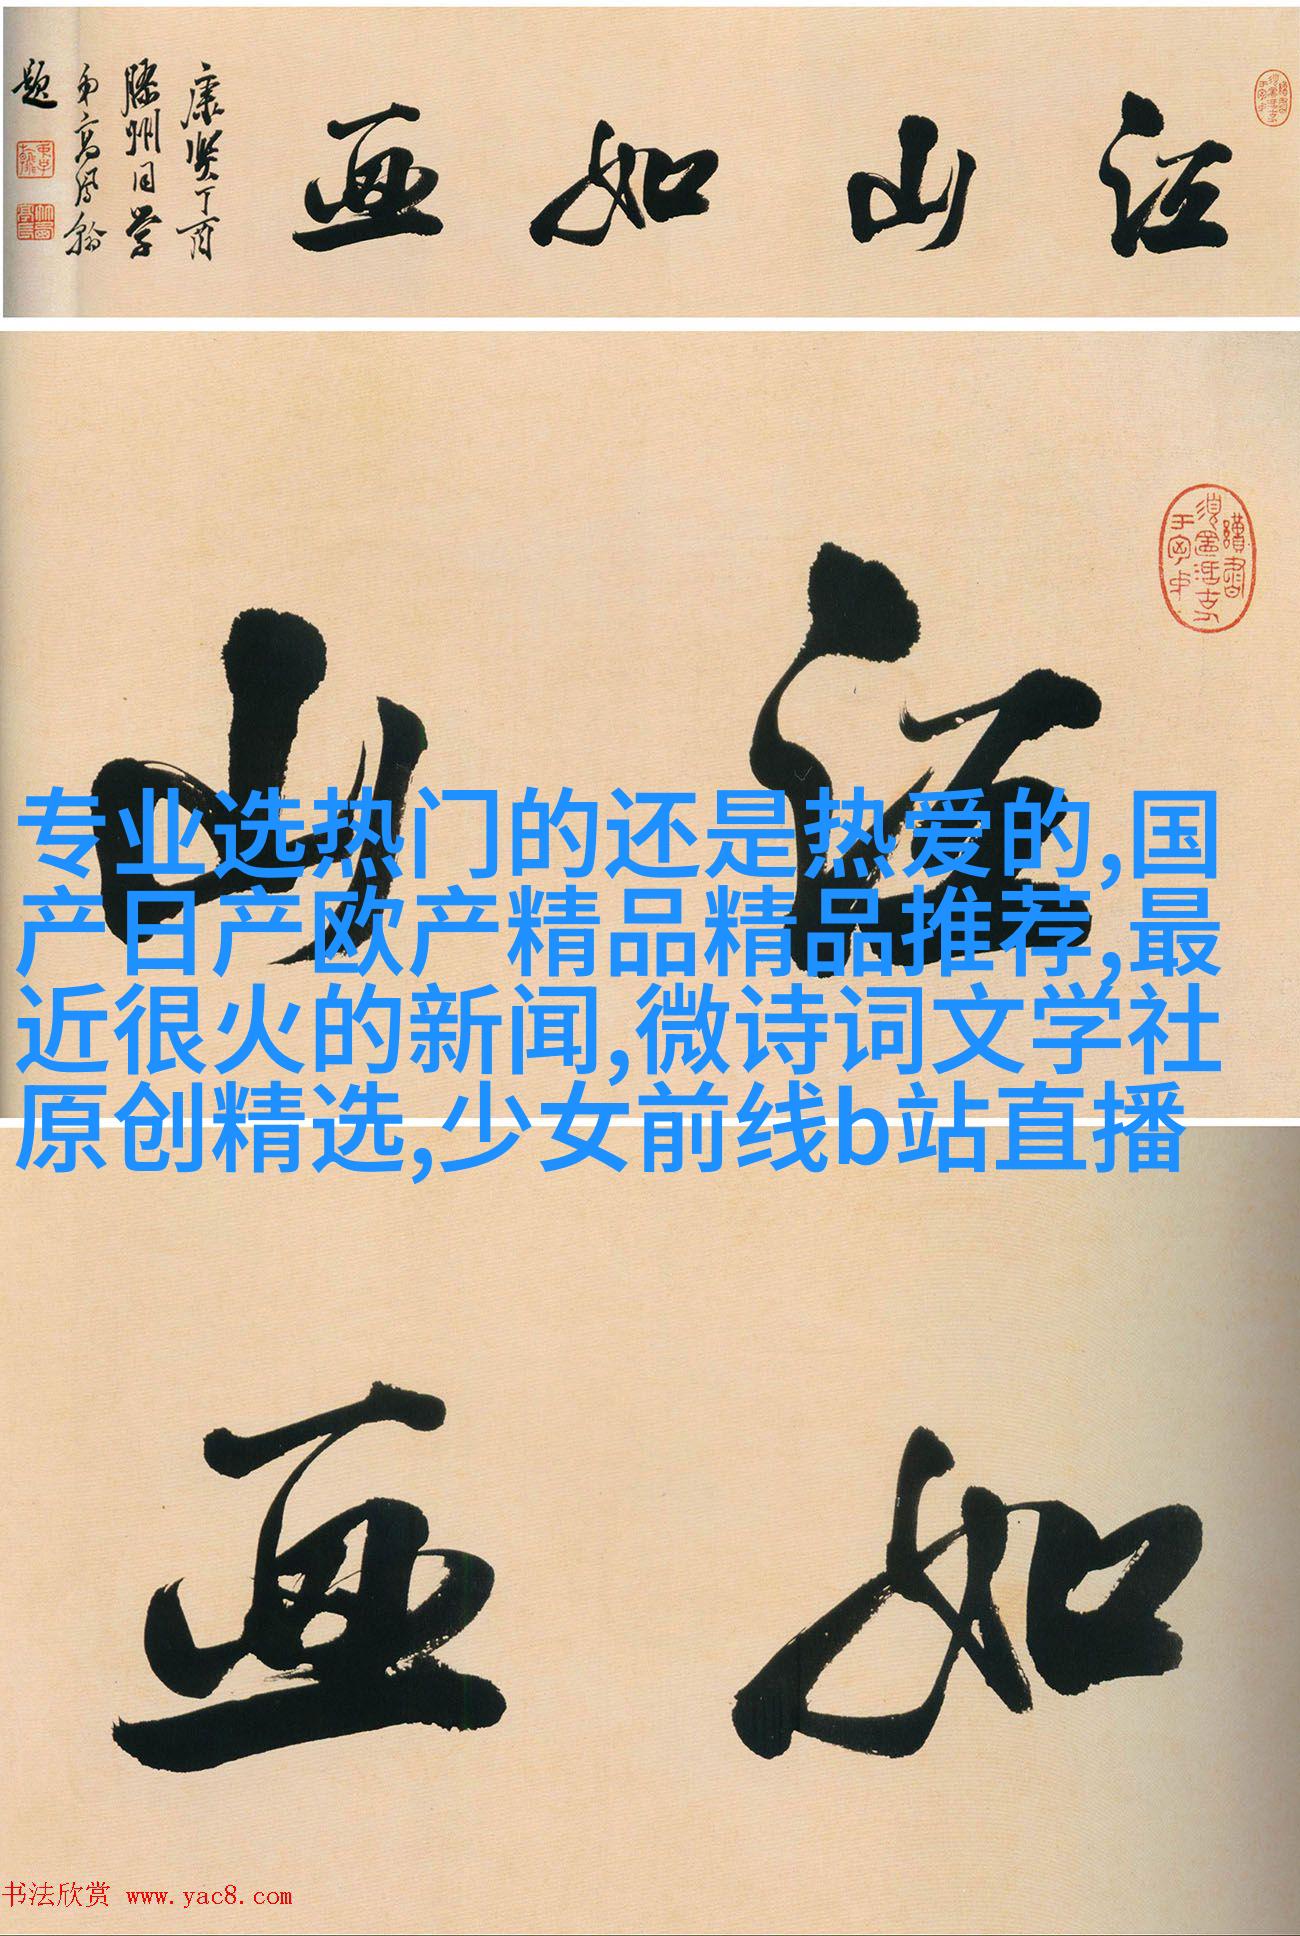 江山如画
康贤丁酉
滕州同学
弟高凤翰
题
山江
专业选热门的还是热爱的,国
产日产欧产精品精品推荐,最
近很火的新闻,微诗词文学社
原创精选,少女前线b站直播
画如
书法欣赏 www.yac8.com